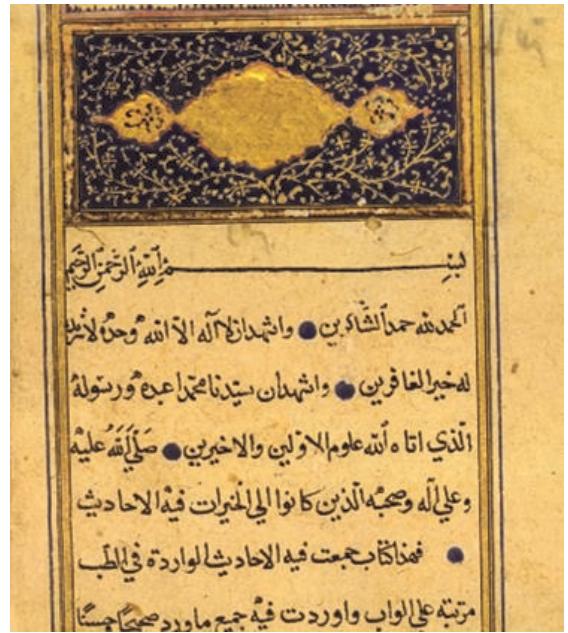 بسم الله الرحمن الرحيم
الحمد لله حمد الشاكرين واشهد ان لا اله الا الله وحده لا شريك
له خير الغافرين واشهد ان سيدنا محمدا عبده ورسوله
الذي اتاه الله علوم الاولين والاخيرين صلى الله عليه
وعلي اله وصحبه الذين كانوا الي الخيرات فيه الاحاديث
فهذا كتاب جمعت فيه الاحاديث الواردة في الطب
مرتبه علي الواب واوردت فيه جميع ما ورد صحيحا حسنا